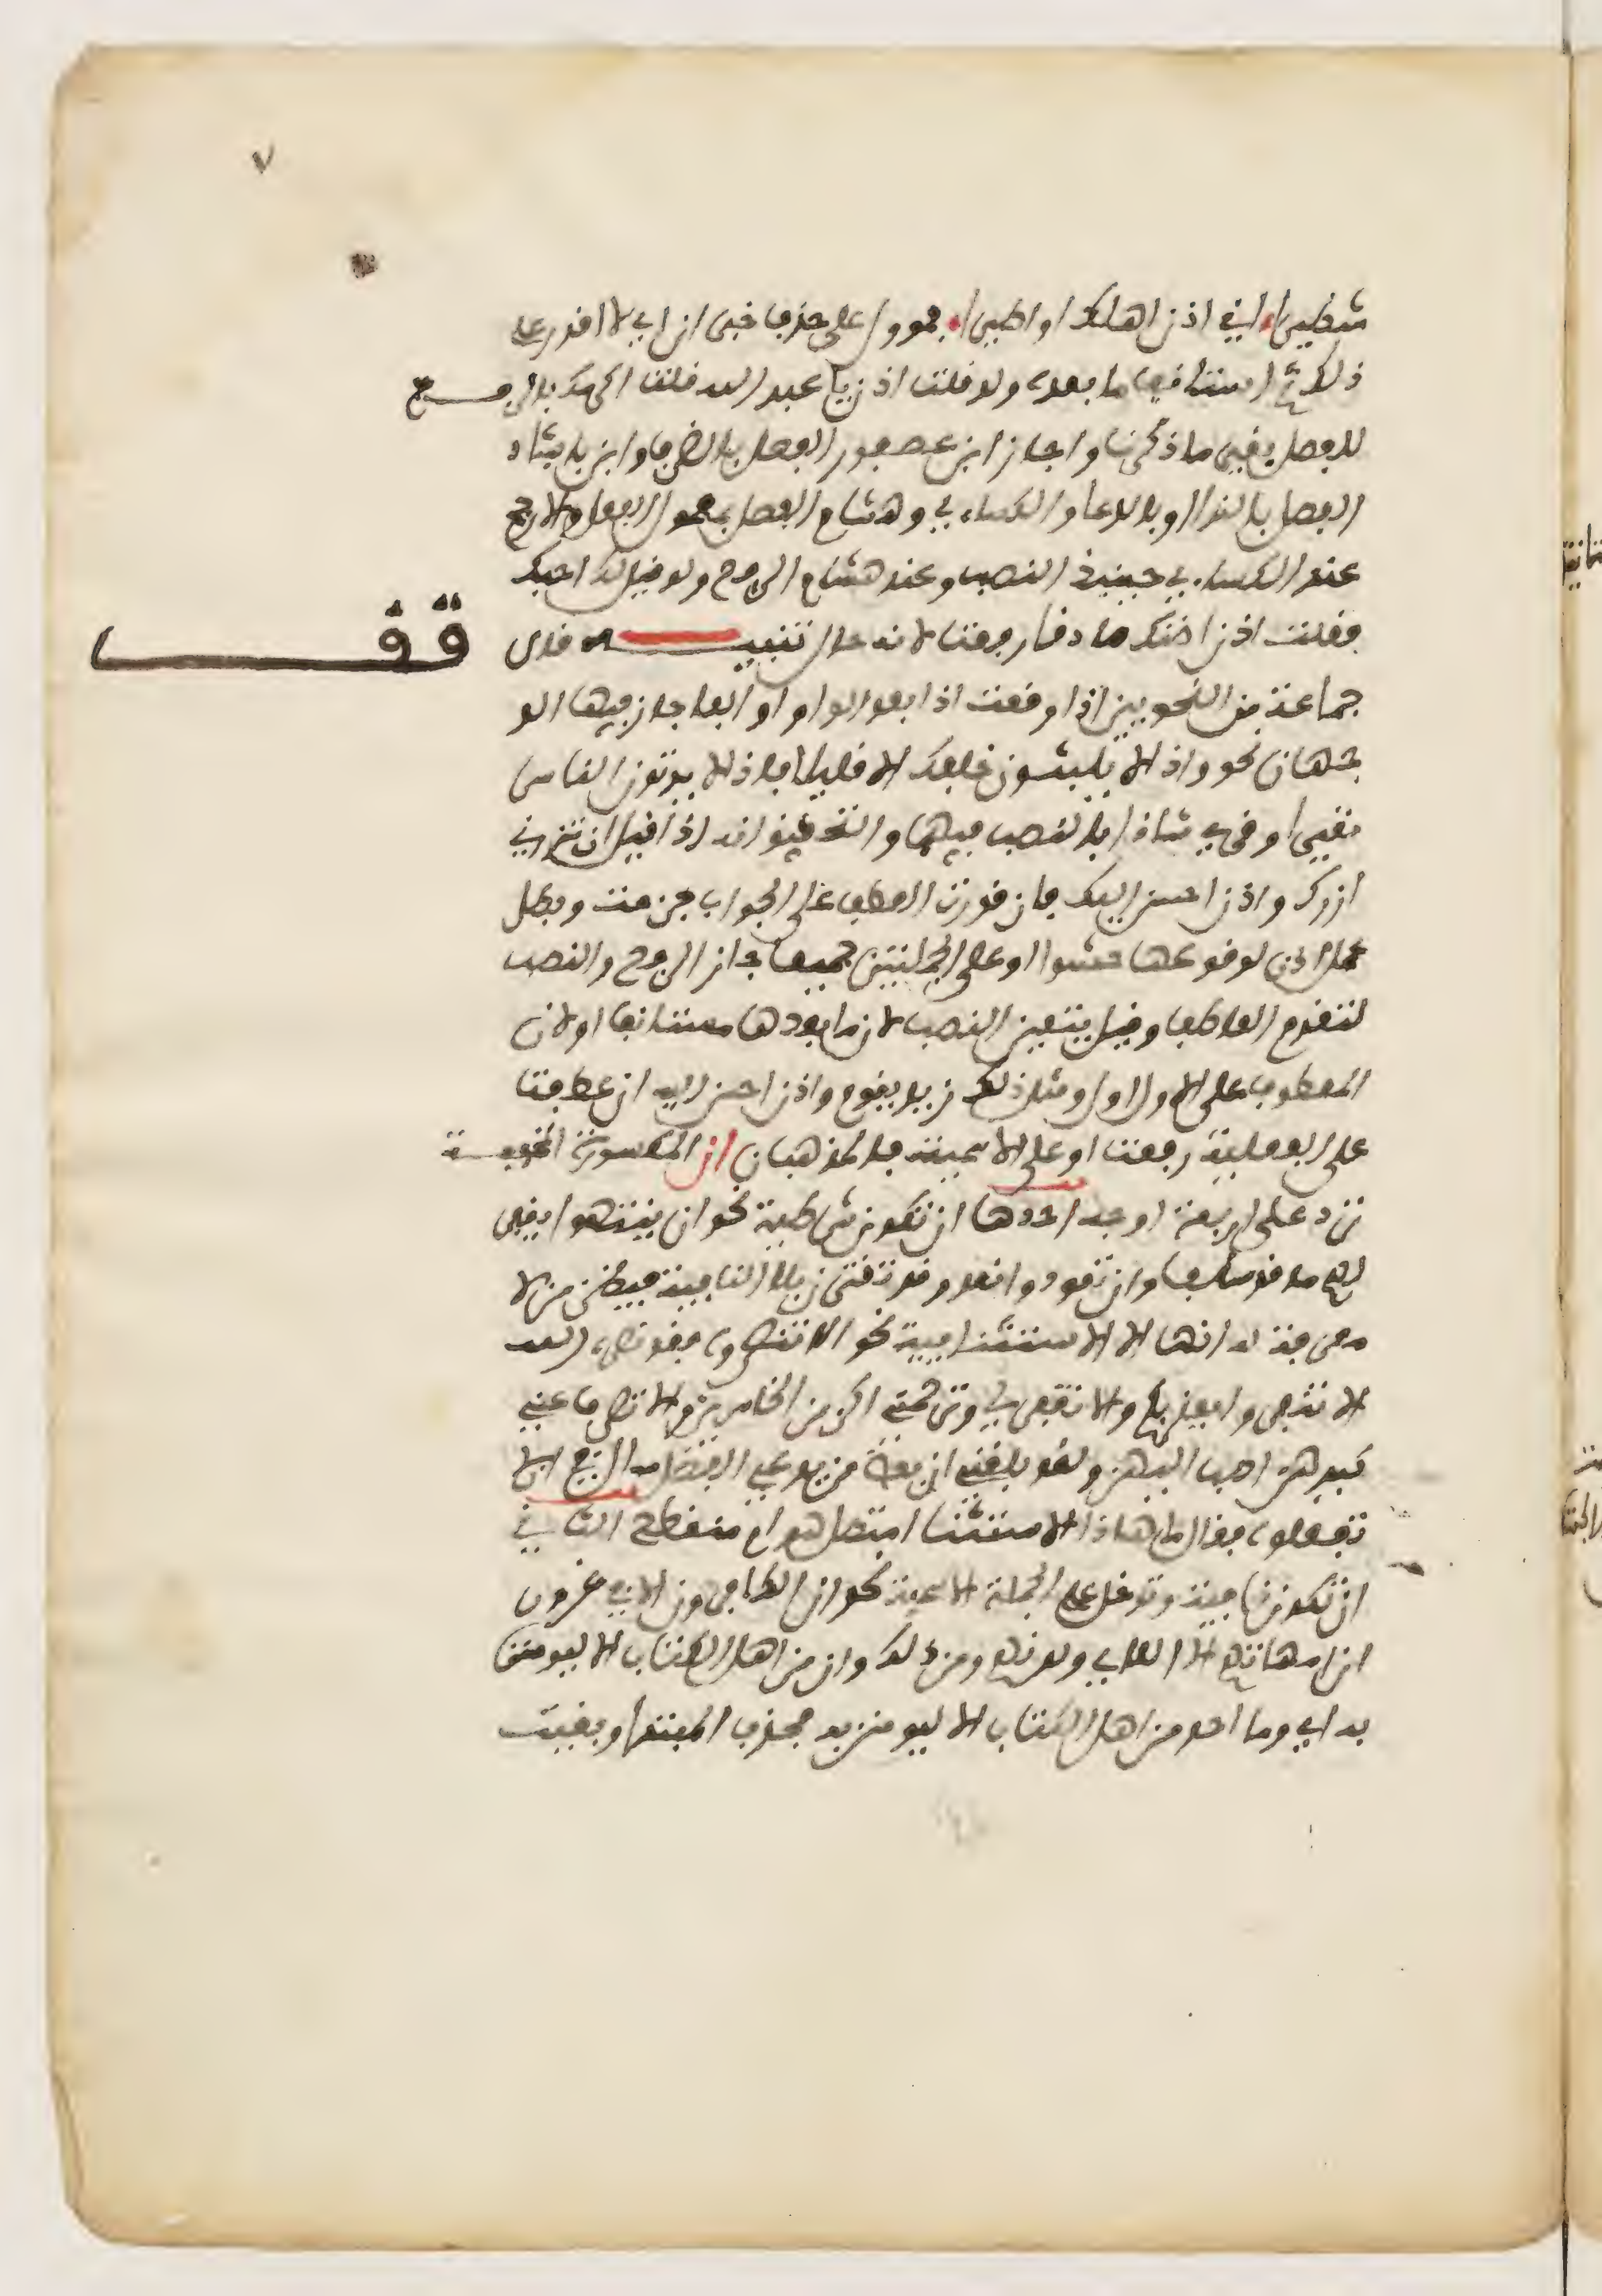 ٧
شطيرا اني اذن اهلك او اطيرا فمؤول على حذف خبر ان اي لا اقدر على
ذلك ثم استانف ما بعده ولو قلت اذن يا عبد الله قلت اكرمك بالرفع
للفصل بغير ما ذكرنا واجاز ابن عصفور الفصل بالظرف وابن بابشاد
الفصل بالندا او بالدعا والكساءي وهشام الفصل بمعمول الفعل والارجح
عند الكساءي حينيذ النصب وعند هشام الرفع ولو قيل لك احبك
فقلت اذن اظنك صادقا رفعت لانه حال تنبيه قال
قف
جماعة من النحويين اذا وقعت اذا بعد الواو او الفا جاز فيها الو
جهان نحو واذا لا يلبثون خلفك الا قليلا فاذا لا يوتون الناس
نقيرا وقرئ شاذا بالنصب فيهما والتحقيق انه اذا قيل ان تزرني
ازرك واذن احسن اليك فان قدرت العطف على الجواب جزمت وبطل
عمل اذن لوقوعها حشوا او على الجملتين جميعا جاز الرفع والنصب
لتقدم العاطف وقيل يتعين النصب لان ما بعدها مستانف او لان
المعطوف على الاول اول ومثل ذلك زيد يقوم واذن احسن اليه ان عطفت
على الفعلية رفعت او على الاسمية فالمذهبان ان المكسورة الخفيفة
ترد على اربعة اوجه احدها ان تكون شرطية نحو ان ينتهوا يغفر
لهم ما قد سلف وان تعودوا نعد وقد تقترن بلا النافية فيظن من لا
معرفة له انها الا الاستثنايية نحو الا تنصروه فقد نصره الله
الا تنفروا يعذبكم والا تغفر لي وترحمني اكن من الخاسرين والا تصرف عني
كيدهن اصب اليهن ولقد بلغني ان بعض من يدعي الفضل سال في الا
تفعلوه فقال ما هاذا الاستثنا امتصل هو ام منقطع الثاني
ان تكون نافية وتدخل على الجملة الاسمية نحو ان الكافرون الا في غرور
ان امهاتهم الا اللاءي ولدنهم ومن ذلك وان من اهل الكتاب الا ليومنن
به اي وما احد من اهل الكتاب الا ليومنن به فحذف المبتدا وبقيت